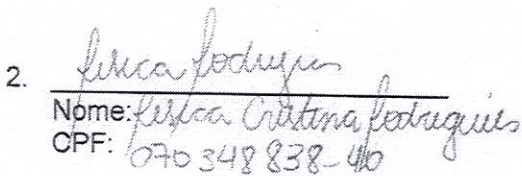 2. Jessica Rodrigues
Nome: Jessica Cristina Rodrigues
CPF: 070348838-40